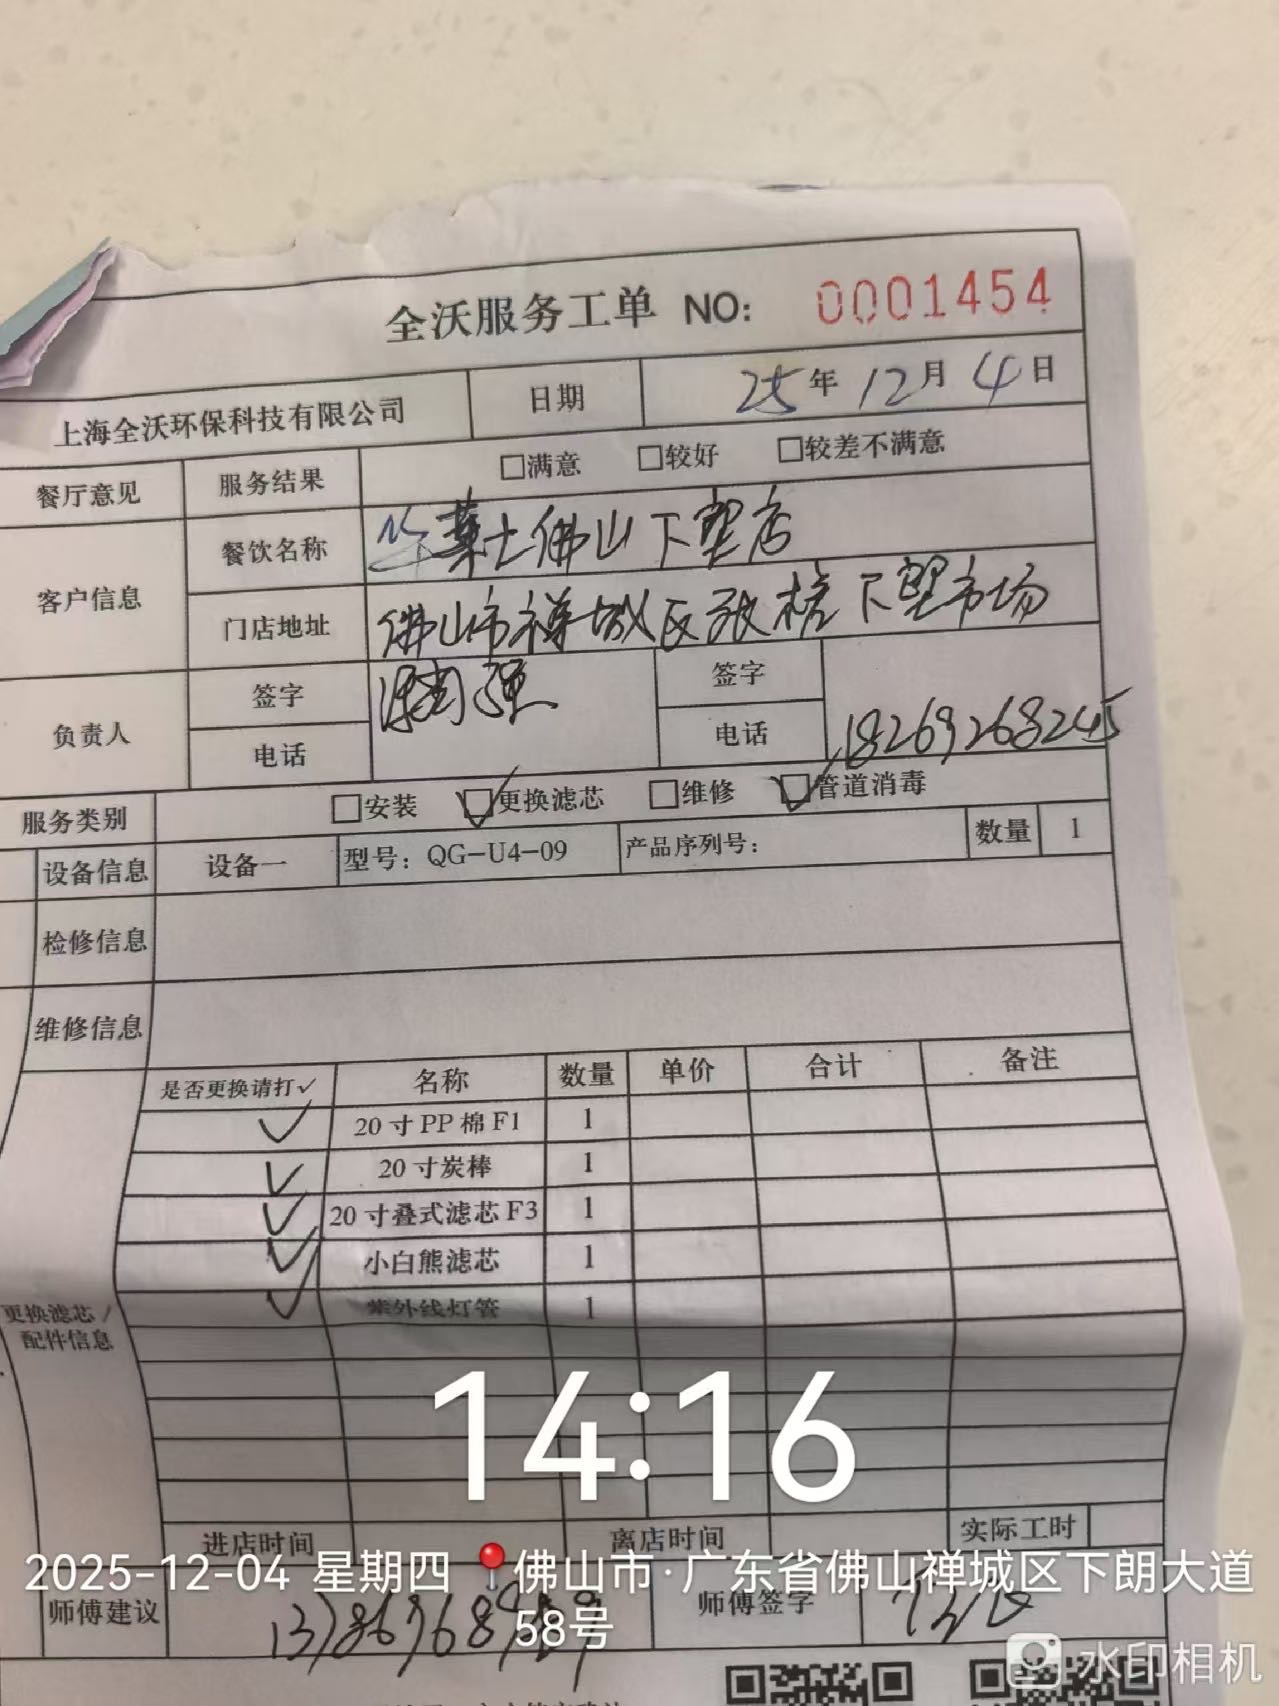 全沃服务工单 NO: 0001454
上海全沃环保科技有限公司 日期 25年12月4日
餐厅意见 服务结果 □满意 □较好 □较差不满意
客户信息 餐饮名称 华莱士佛山下望店
门店地址 佛山市禅城区张槎下望市场
负责人 签字 签字
电话 电话 18269268245
服务类别 □安装 ☑更换滤芯 □维修 ☑管道消毒
设备信息 设备一 型号: QG-U4-09 产品序列号: 数量 1
检修信息
维修信息
是否更换请打✓ 名称 数量 单价 合计 备注
✓ 20寸PP棉F1 1
✓ 20寸炭棒 1
✓ 20寸叠式滤芯F3 1
✓ 小白熊滤芯 1
✓ 紫外线灯管 1
更换滤芯/
配件信息
14:16
进店时间 离店时间 实际工时
2025-12-04 星期四 佛山市·广东省佛山禅城区下朗大道
58号
师傅建议 师傅签字
水印相机